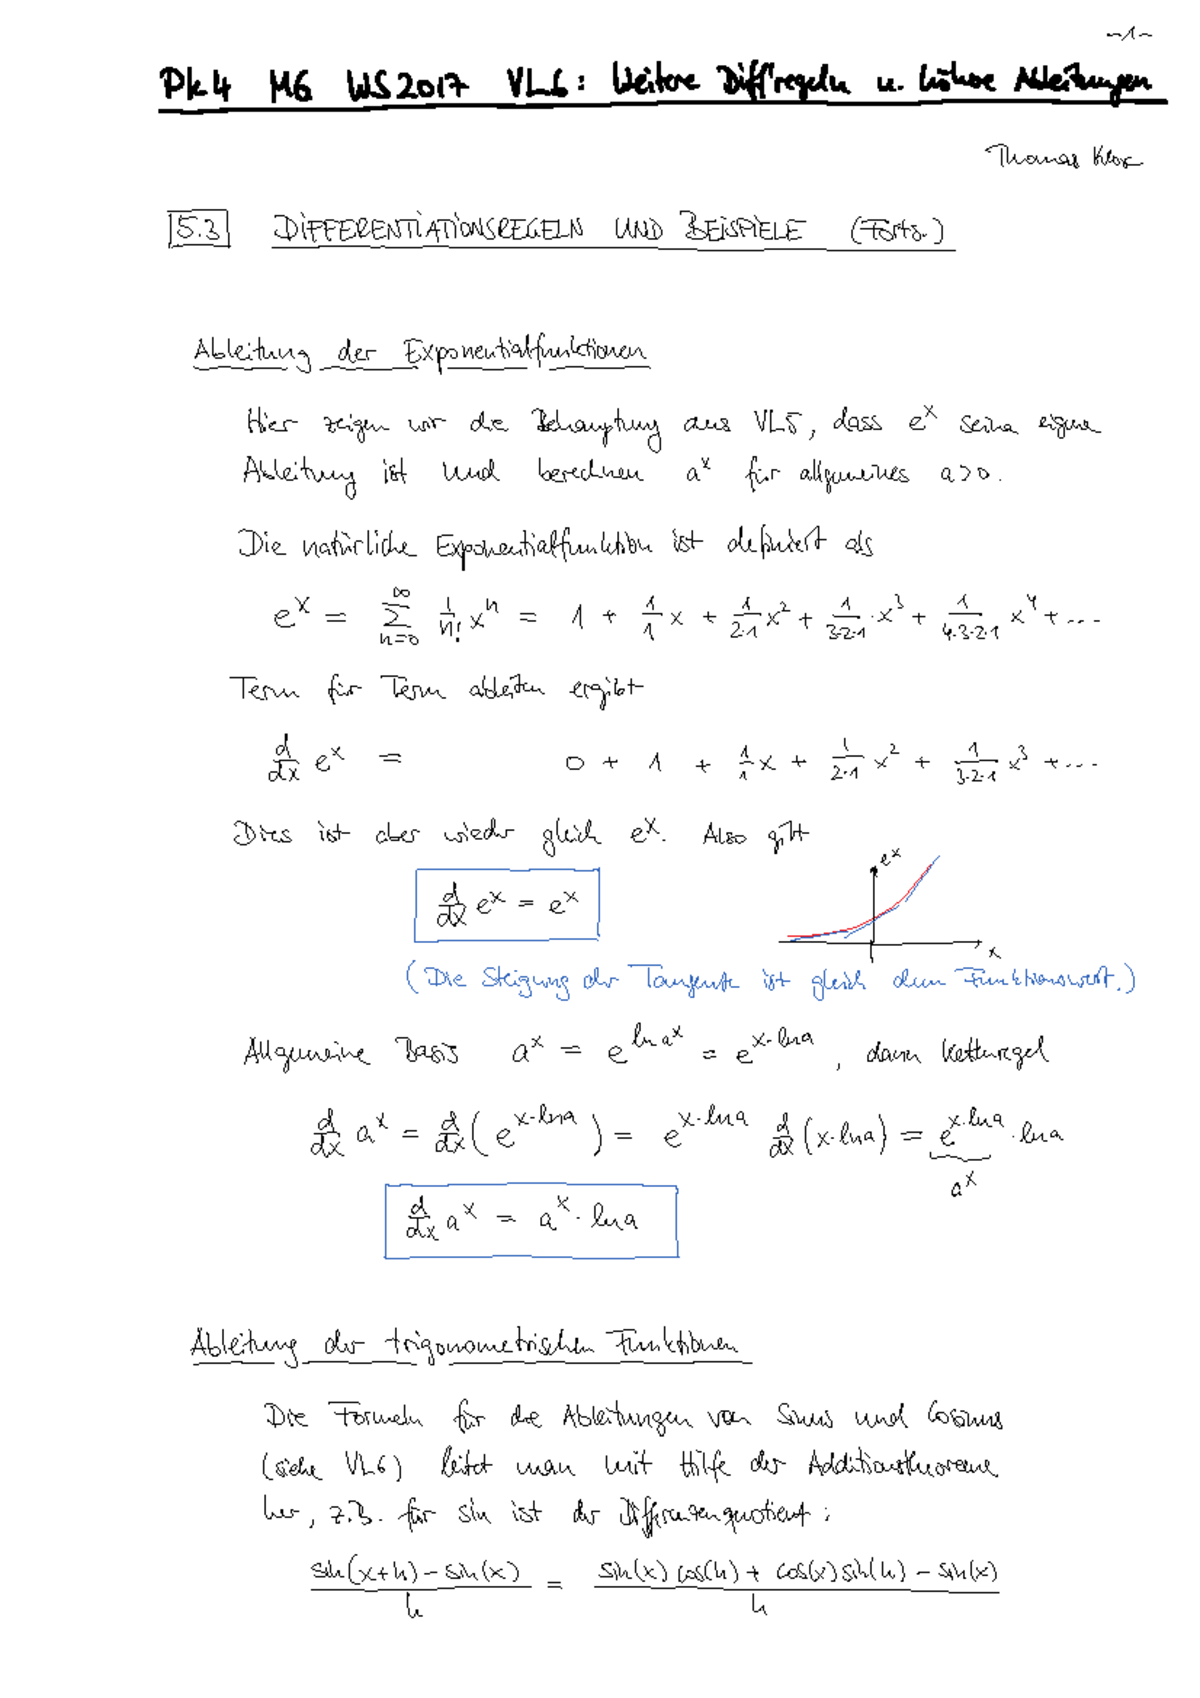 -1-
Pk4 M6 WS2017 VL6: Weitere Diff'regeln u. höhere Ableitungen
Thomas
5.3 DIFFERENTIATIONSREGELN UND BEISPIELE (Forts.)
Ableitung der Exponentialfunktionen
Hier zeigen wir die Behauptung aus VL5, dass e^x seine eigene
Ableitung ist und berechnen a^x für allgemeines a>0.
Die natürliche Exponentialfunktion ist definiert als
e^x = ∑_{n=0}^{∞} 1/n! x^n = 1 + 1/1 x + 1/(2·1) x^2 + 1/(3·2·1) · x^3 + 1/(4·3·2·1) x^4 + ...
Term für Term ableiten ergibt
d/dx e^x = 0 + 1 + 1/1 x + 1/(2·1) x^2 + 1/(3·2·1) x^3 + ...
Dies ist aber wieder gleich e^x. Also gilt
d/dx e^x = e^x
e^x
x
(Die Steigung der Tangente ist gleich dem Funktionswert.)
Allgemeine Basis a^x = e^{ln a^x} = e^{x·ln a}, dann Kettenregel
d/dx a^x = d/dx (e^{x·ln a}) = e^{x·ln a} d/dx (x·ln a) = e^{x·ln a} · ln a
a^x
d/dx a^x = a^x · ln a
Ableitung der trigonometrischen Funktionen
Die Formeln für die Ableitungen von Sinus und Cosinus
(siehe VL6) leitet man mit Hilfe der Additionstheoreme
her, z.B. für sin ist der Differenzenquotient:
(sin(x+h) - sin(x))/h = (sin(x) cos(h) + cos(x) sin(h) - sin(x))/h